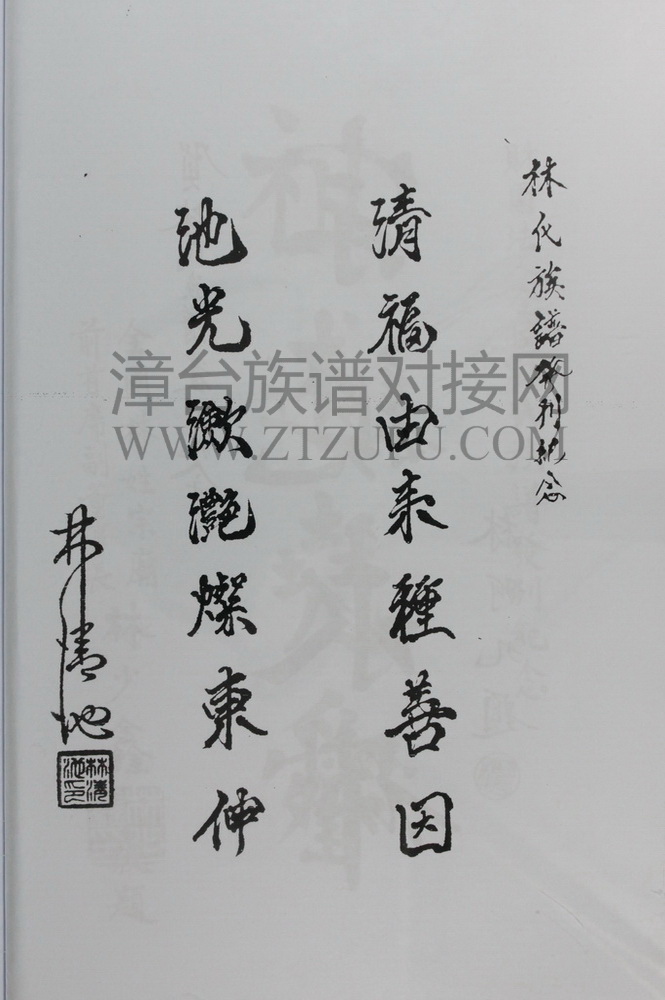 林氏族譜發刊紀念
清福由来種善因
池光潋灧燦東
林清池
林清池印
漳台族谱对接网
WWW.ZTZUPU.COM